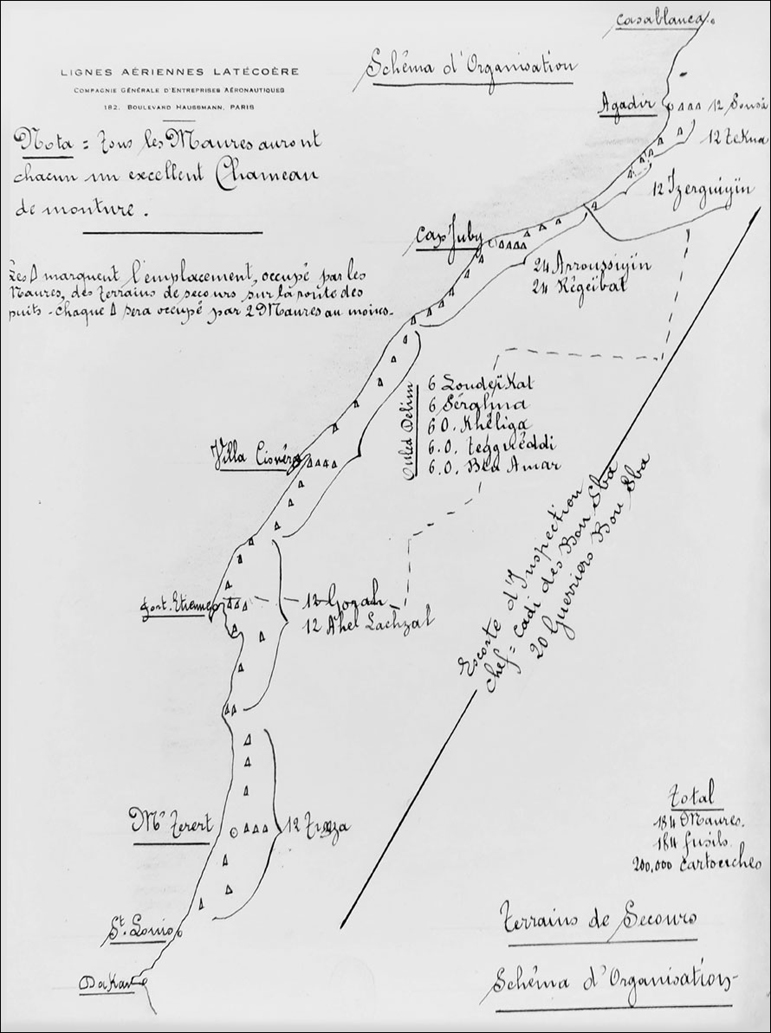 Casablanca
Schéma d'Organisation
LIGNES AÉRIENNES LATÉCOÈRE
COMPAGNIE GÉNÉRALE D'ENTREPRISES AÉRONAUTIQUES
182, BOULEVARD HAUSSMANN, PARIS
Nota = Tous les Maures auront
chacun un excellent Chameau
de monture.
Agadir
12 Souss
12 Tekna
12 Izerguiyïn
Cap Juby
Les Δ marquent l'emplacement, occupé par les
Maures, des terrains de secours sur la route des
puits - chaque Δ sera occupé par 2 Maures au moins.
24 Arroussiyïn
24 Régeïbat
Ouled Delim
6 Loudeïkat
6 Sérghna
6 O. Khéliga
6.O. Teggueddi
6.O. Ben Amar
Villa Cisnéros
Escorte d'Inspection
Chef = Cadi des Bou Sba
20 Guerriers Bou Sba
Port-Etienne
12 Gorah
12 Ahel Lachzal
Mr Terert
12 Trarza
Total
184 Maures.
184 fusils.
200,000 Cartouches
St. Louis
Dakar
Terrains de Secours
Schéma d'Organisation